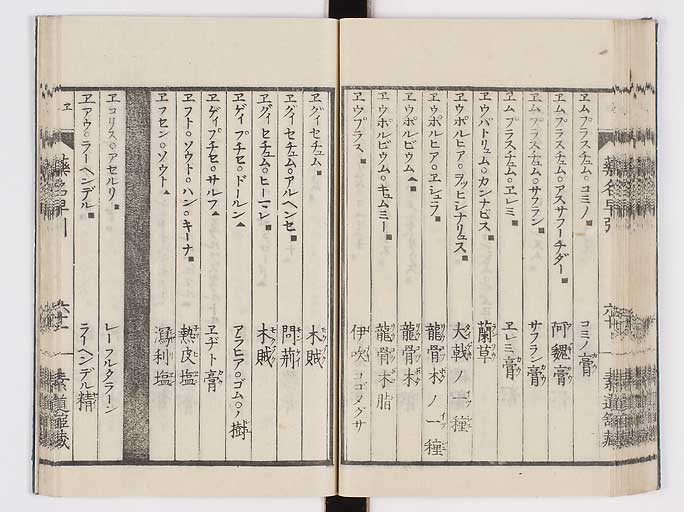 ヱムプラスチュム。コミノ コミノ膏
ヱムプラスチュム。アスサフーチダー 阿魏膏
ヱムプラスチュム。サフラン サフラン膏
ヱムプラスチュム。ヱレミ ヱレミ膏
ヱウパトリュム。カンナビス 蘭草
ヱウポルヒア。ヲッヒシナリュス 大戟ノ一種
ヱウポルヒア。ヱシュラ 龍骨木ノ一種
ヱウポルビウム 龍骨木
ヱウポルビウム。キュムミー 龍骨木脂
ヱウプラス 伊吹コゴメグサ
ヱグイセチュム 木賊
ヱグイセチュム。アルヘンセ 問荊
ヱグイセチュム。ヒーマレ 木賊
ヱゲイプチセ。ドールン アラヒア。ゴム。ノ樹
ヱゲイプチセ。サルフ ヱヂト膏
ヱフト。ソウト。ハン。キーナ 熱皮塩
ヱフセン。ソウト 瀉利塩
ヱコリス。アセルリ レーフルクラーン
ヱアウ。ラーヘンデル ラーヘンデル精
ヱ
藥名早引
六十一
素道館藏